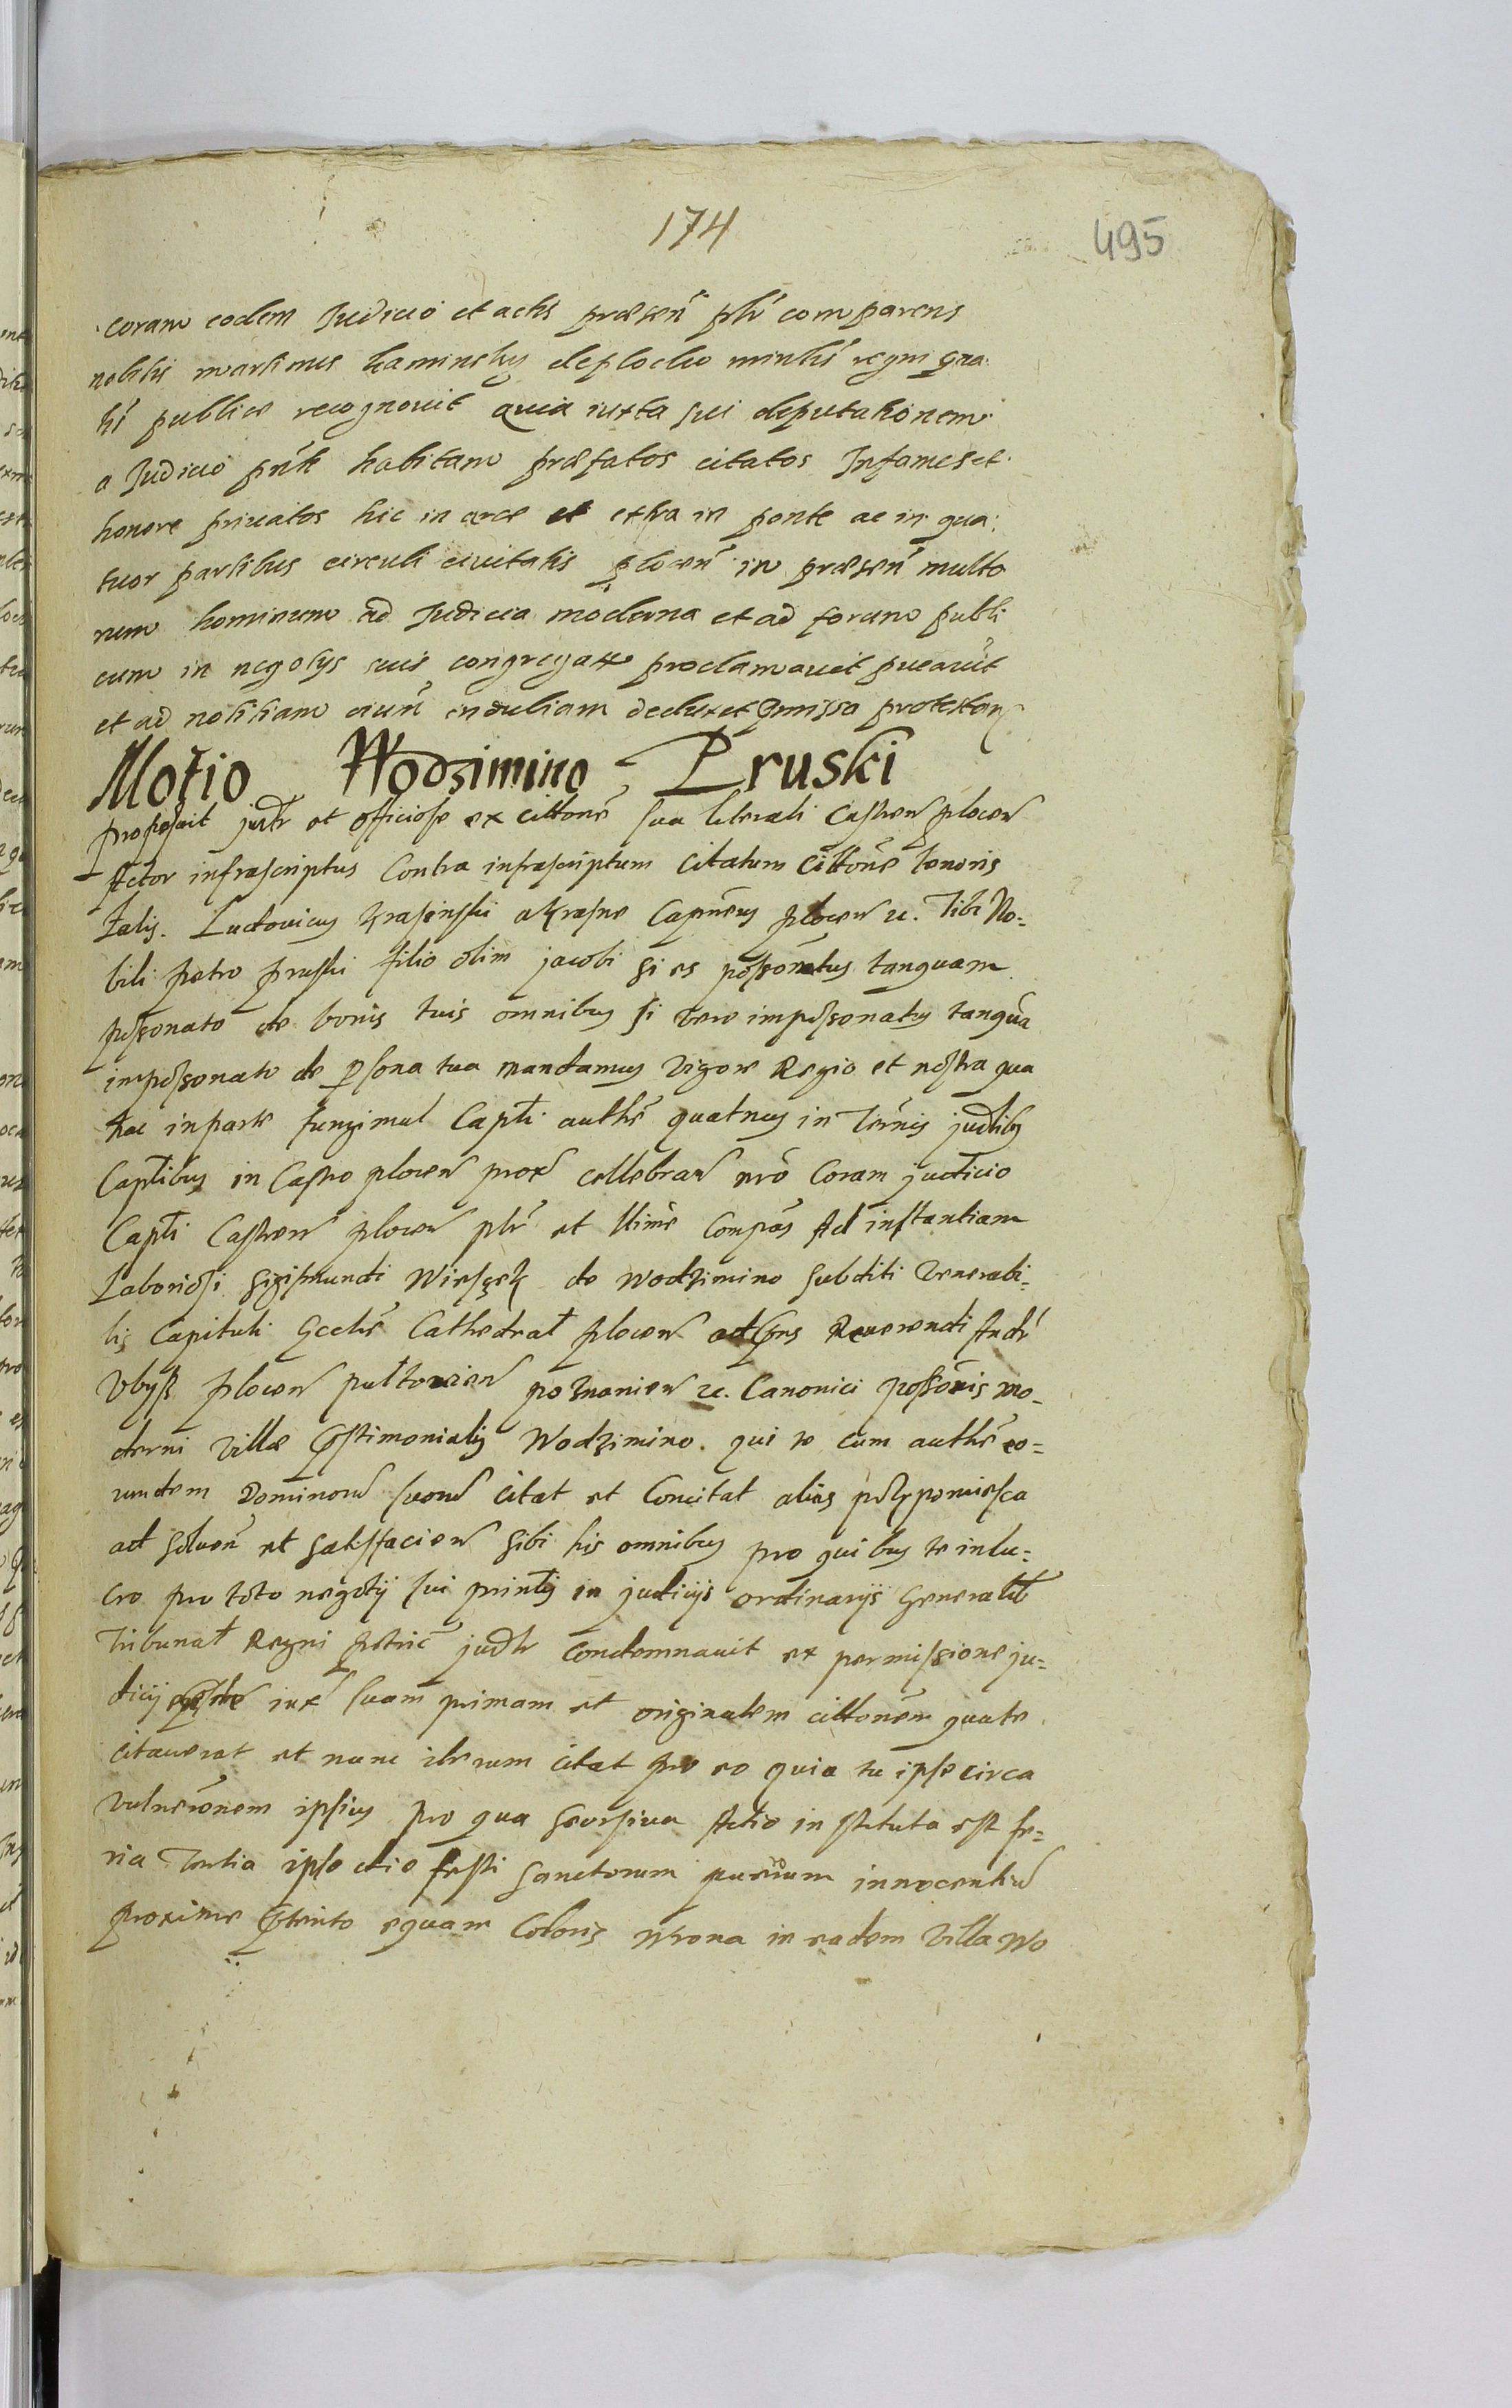 174
495
coram eodem Judicio et actis præsen̄ pl̄r comparens
nobilis martinus kaminsky de plocko min̄lis regni gna
l̄is publice recognovit quia iuxta sui deputationem
a Judicio p̄nti habitam præfatos citatos Infames et
honore privatos hic in arce et extra in ponte ac in qua
tuor partibus circuli civitatis plocen̄ in præsen̄ multo
rum hominum ad Judicia moderna et ad forum publi
cum in negotys suis congregatt proclamavit
et ad notitiam deduxit protestan
Motio Wodzimino Pruski
proposuit jud̄r et officiose ex cittone sua literali Castren plocen
Actor infrascriptus Contra infrascriptum Citatum Cittōne tenoris
talis. Ludovicus Krasinski a Krasne Capn̄eus plocen rc. Tibi No=
bili petro pruski filio olim jacobi si es possōnatus tanquam
possonato de bonis tuis omnibus si vero impossonatus tanquā
impossonato de psona tua mandamus vigore Regio et nostra qua
hac in parte fungimur Capt̄i authē quatnus in Termis judtibus
Captibus in Castro plocen prox cellebran̄ nrō Coram judicio
Capt̄i Castren plocen pl̄r et ltime Compās Ad instantiam
Laboriosi Sigismundi Wieszek de Wodzimino subditi venerabi=
lis Capituli Eccliē Cathedrat plocen Reverendi Andr̄
Ubysz plocen pultovien poznanien rc. Canonici possōris mo=
derni villæ Wodzimino. qui te cum authē eo=
rundem Dominorū suorū citat et Concitat alias przypowiesca
ad solven̄ et satisfacien sibi his omnibus pro quibus te in lu=
cro pro toto negotij sui in judicijs ordinarijs Generalib
Tribunal Regni petric judr condemnavit ex permissione ju=
dicij iux̄ suam primam et originalem cittonēm qua te
citaverat et nunc iterum citat pro eo quia tu ipse circa
vulnerōnem ipsius pro qua seorsiva Actio instituta est fe=
ria Tertia ipso die festi Sanctorum puerum innocentiū
proxime equam Coloris wrona in eadem villa Wo